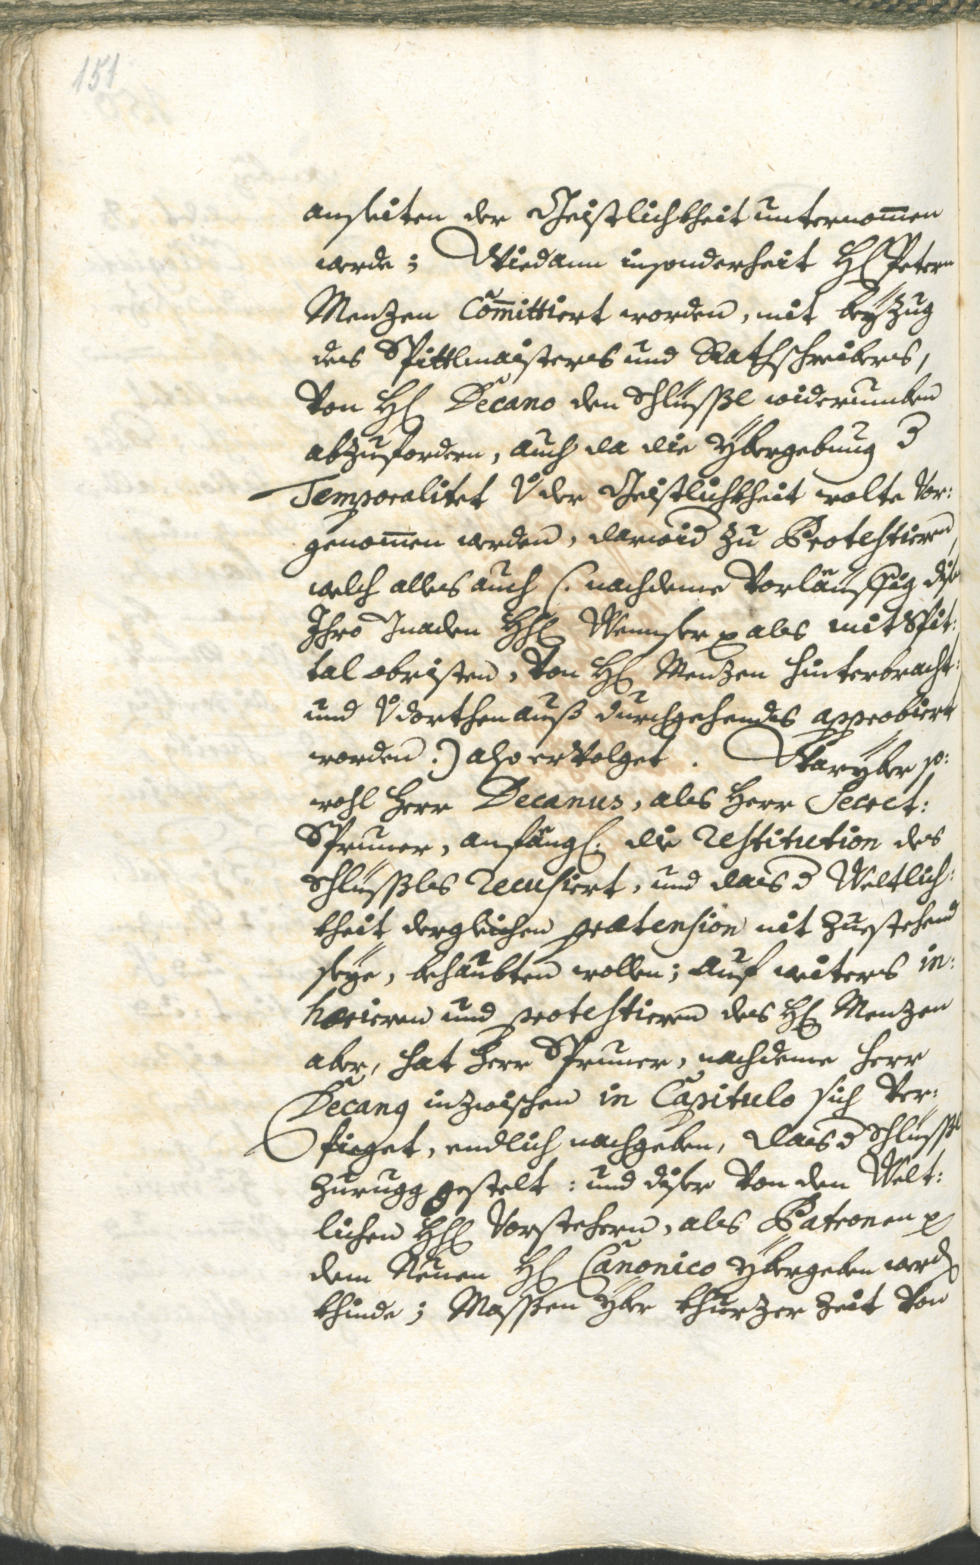 151
anseiten der Geistlichkheit unternom̅en
werde; Wiedann insonderheit H: Petern
Menzen Com̅ittiert worden, mit beÿzug
des Spittlmaisters und Rathschreibers,
Von H: Decano den Schlüssl widerumben
abzufordern, auch da die ÿbergebung d
Temporalitet v der Geistlichkheit wolte vor:
genom̅en werden, darwid zu Protestieren,
welch alles auch (: nachdeme Vorläuffig dise
Ihro Gnaden HH: Wennser p als mit Spit:
tal obristen, Von H: Menzen hinterbracht:
und v dorthen auß durchgehendts approbiert
worden :) also ervolget. Darÿber so:
wohl Herr Decanus, als Herr Secret:
Spruner, anfängl: die restitution des
Schlüssls recusiert, und dass d Weltlich:
kheit dergleichen prætension nit zuestehend
seÿe, behaubten wollen; auf weiters in:
hærieren und protestieren des H: Menzen
aber, hat Herr Spruner, nachdeme Herr
Decang inzwischen in Capitulo sich Ver:
füeget, endlich nachgeben, dass d Schlüssl
zurugg gestelt: und diser Von den Welt:
lichen HH: Vorstehern, als Patronen p
dem Neuen H: Canonico ÿbergeben werd
khinde; Massen ÿber khurzer Zeit Von